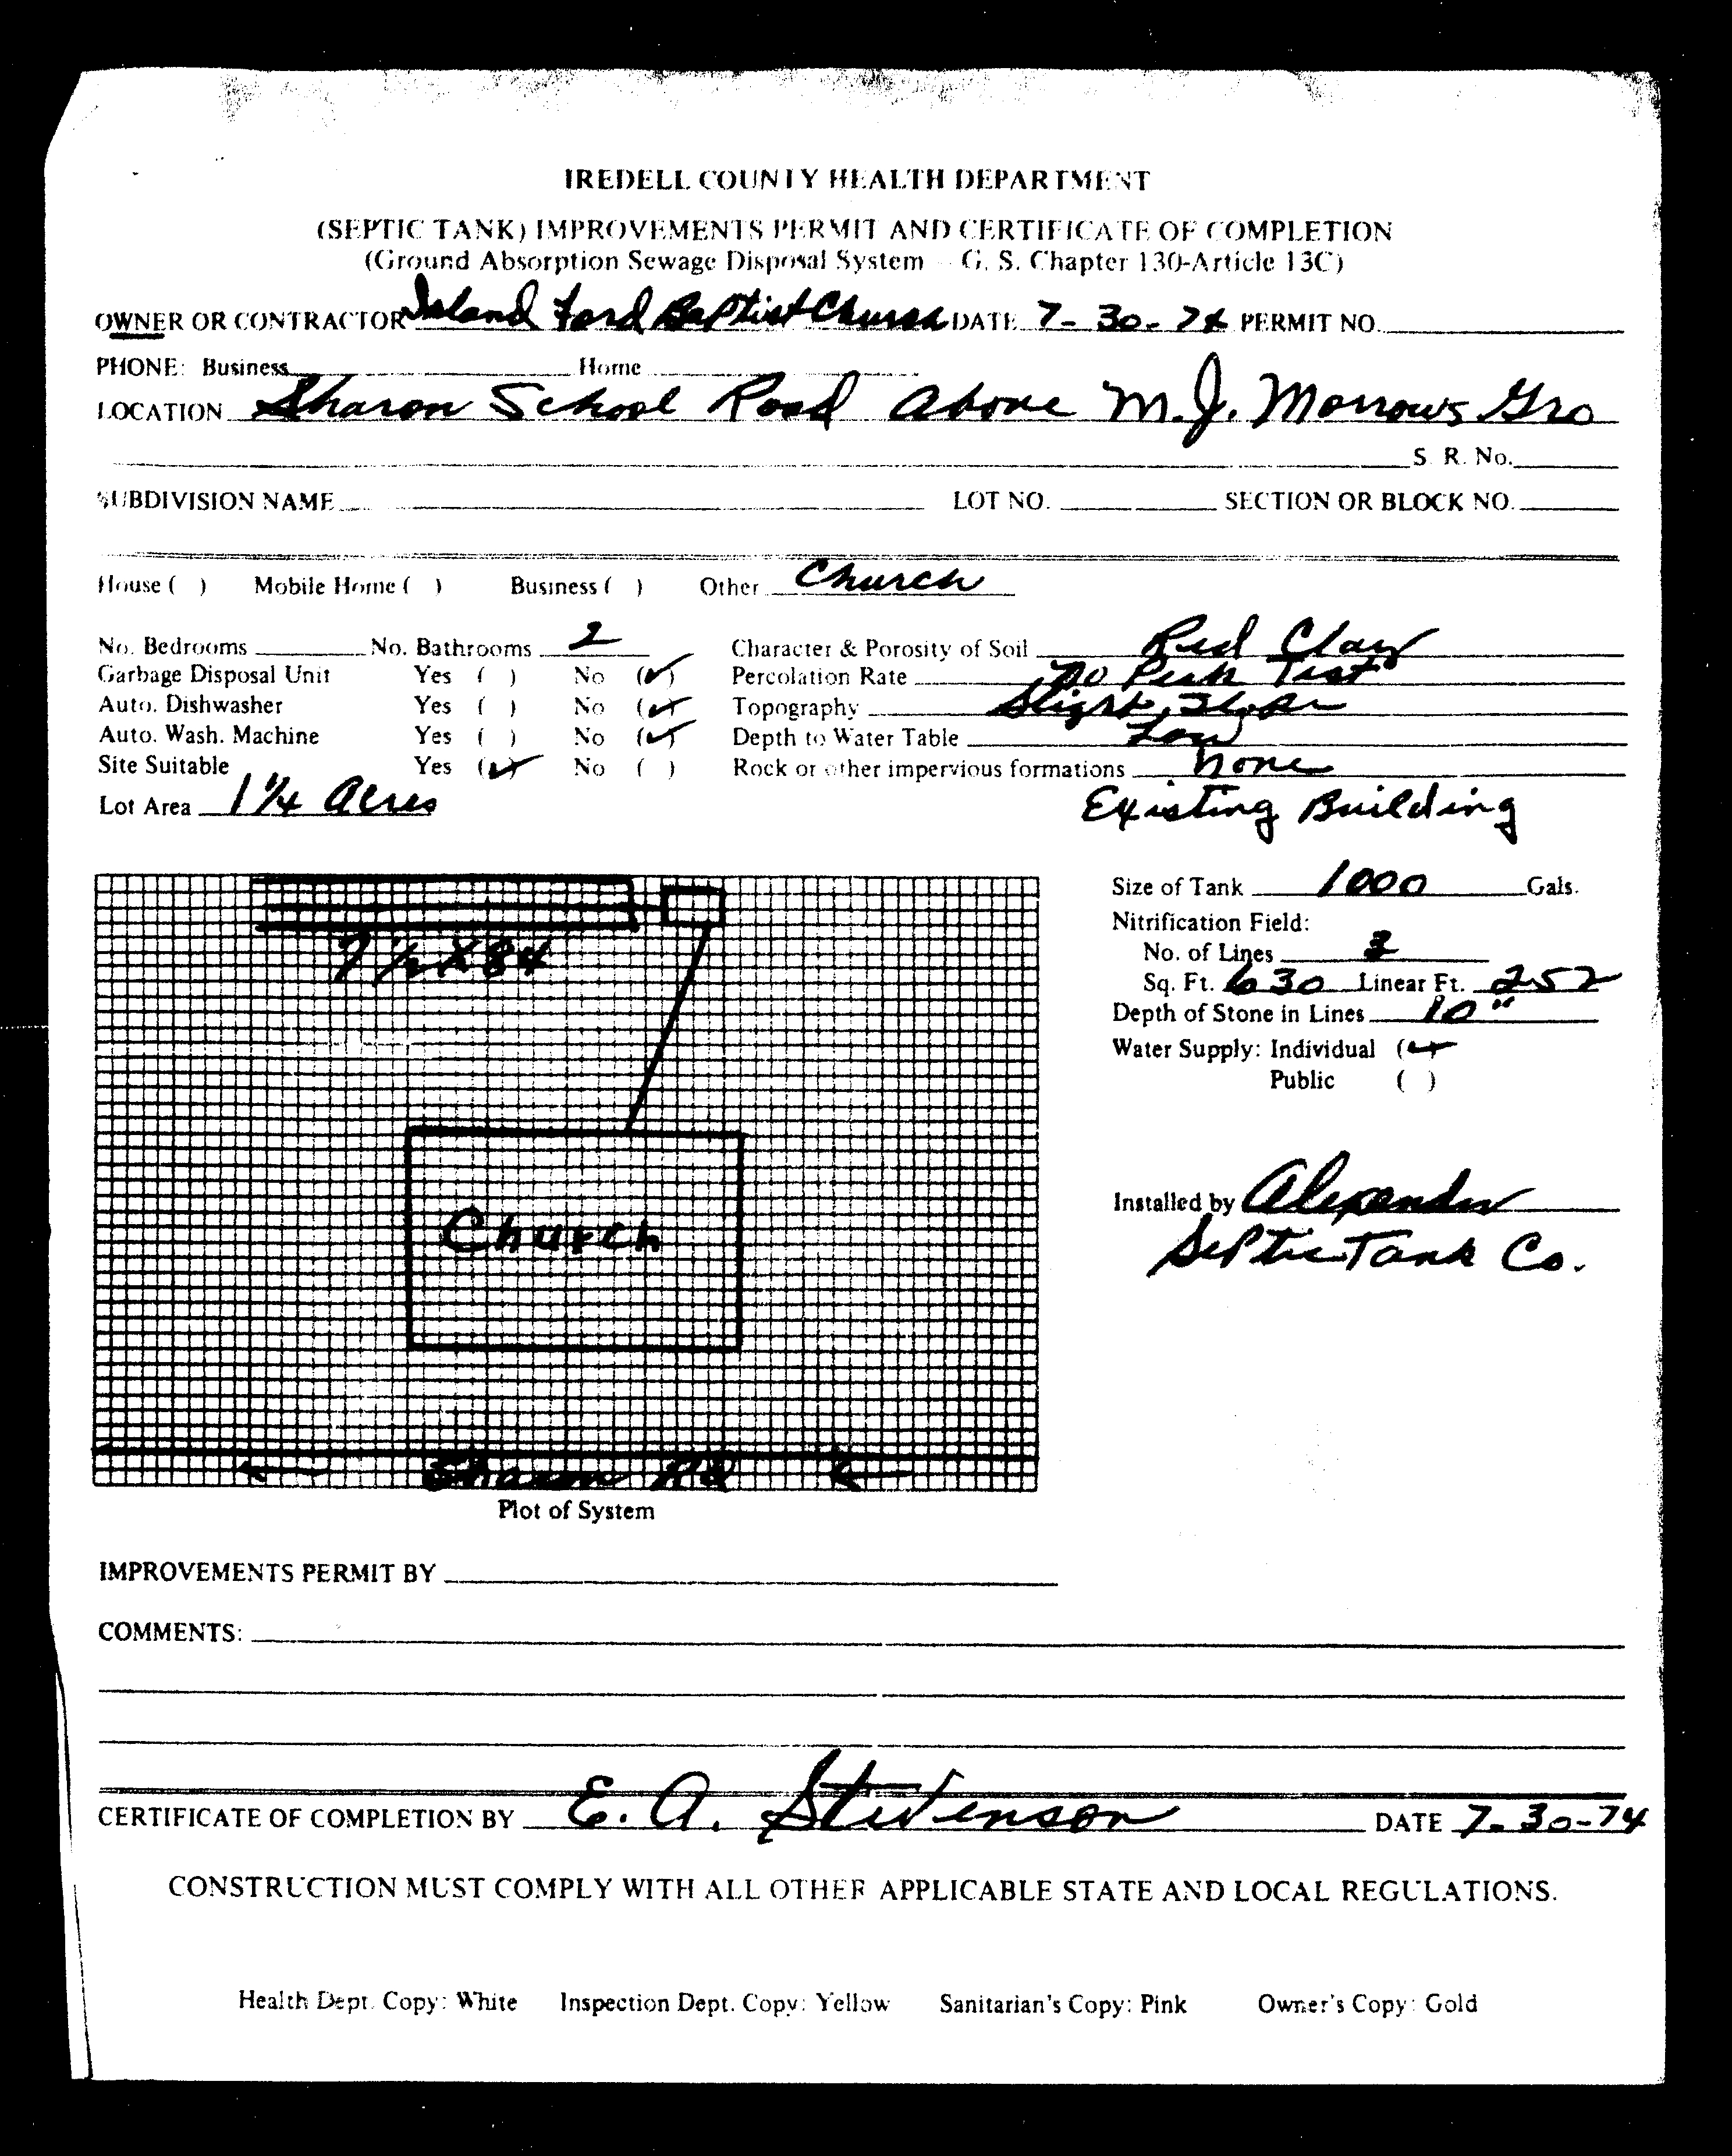 IREDELL COUNTY HEALTH DEPARTMENT
(SEPTIC TANK) IMPROVEMENTS PERMIT AND CERTIFICATE OF COMPLETION
(Ground Absorption Sewage Disposal System - G. S. Chapter 130-Article 13C)
OWNER OR CONTRACTOR Island Ford Baptist Church DATE 7-30-74 PERMIT NO.
PHONE: Business Home
LOCATION Sharon School Road Above M.J. Morrows Gro
S. R. No.
SUBDIVISION NAME LOT NO. SECTION OR BLOCK NO.
House ( ) Mobile Home ( ) Business ( ) Other Church
No. Bedrooms No. Bathrooms 2 Character & Porosity of Soil Red Clay
Garbage Disposal Unit Yes ( ) No (✓) Percolation Rate No Perk Test
Auto. Dishwasher Yes ( ) No (✓) Topography Slight Slope
Auto. Wash. Machine Yes ( ) No (✓) Depth to Water Table Low
Site Suitable Yes (✓) No ( ) Rock or other impervious formations none
Lot Area 1 1/4 Acres Existing Building
Size of Tank 1000 Gals.
Nitrification Field:
No. of Lines 3
Sq. Ft. 630 Linear Ft. 252
Depth of Stone in Lines 10"
Water Supply: Individual (✓)
Public ( )
Installed by Alexander
Septic Tank Co.
7 1/2 X 84
Church
Sharon Rd
Plot of System
IMPROVEMENTS PERMIT BY
COMMENTS:
CERTIFICATE OF COMPLETION BY E. A. Stevenson DATE 7-30-74
CONSTRUCTION MUST COMPLY WITH ALL OTHER APPLICABLE STATE AND LOCAL REGULATIONS.
Health Dept. Copy: White Inspection Dept. Copy: Yellow Sanitarian's Copy: Pink Owner's Copy: Gold